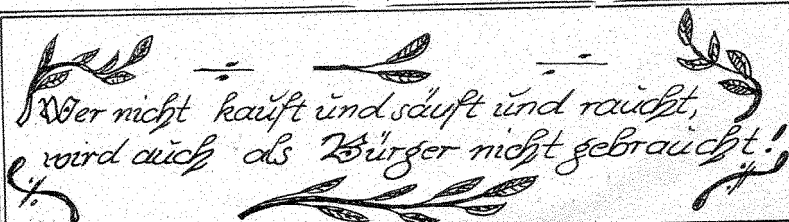 Wer nicht kauft und säuft und raucht,
wird auch als Bürger nicht gebraucht!